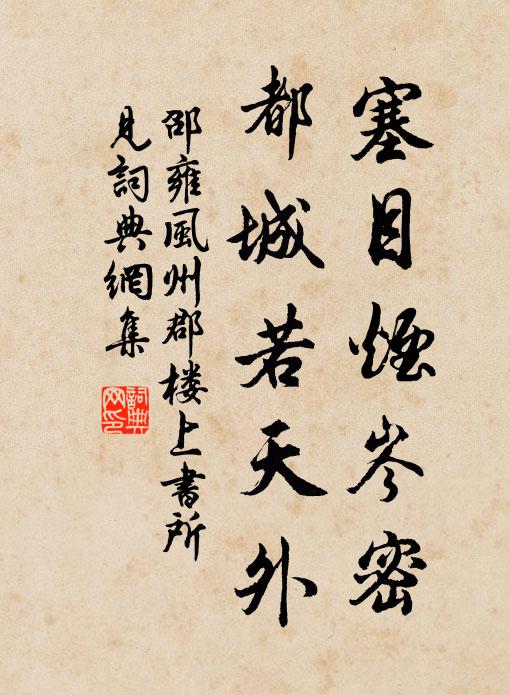 塞目煙岑密
都城若天外
邵雍風州郡楼上書所
見詞典網集
詞典网印